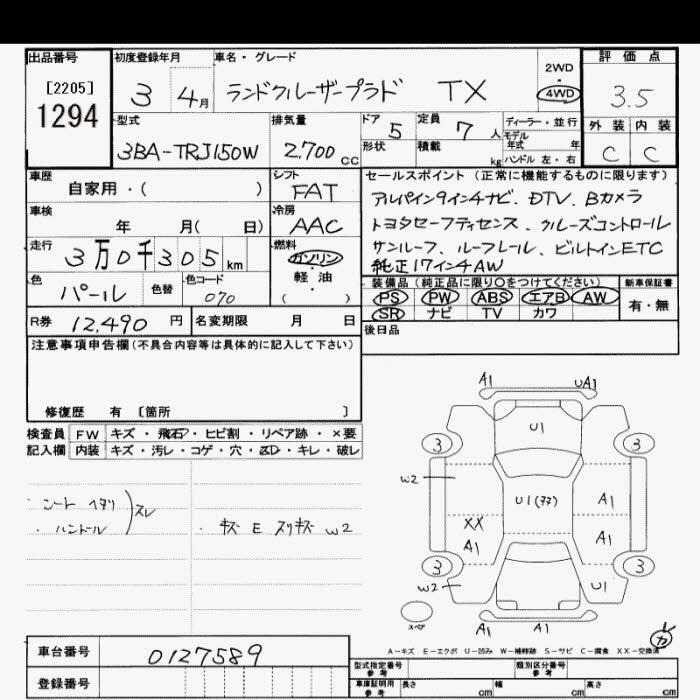 出品番号
[2205]
1294
初度登録年月
3 4月
車名・グレード
ランドクルーザープラド TX
2WD
・
4WD
評価点
3.5
外装 内装
C C
型式
3BA-TRJ150W
排気量
2.700 cc
ドア 5
形状
定員 7 人
積載 kg
ディーラー・並行
モデル
年式 年
ハンドル 左・右
車歴
自家用・( )
シフト
FAT
車検
年 月( 日)
冷房
AAC
走行
3万0千305km
燃料
ガソリン
・
軽油
・
( )
色
パール
色替
色コード
070
R券 12,490 円
名変期限 月 日
セールスポイント (正常に機能するものに限ります)
アルパイン9インチナビ、DTV、Bカメラ
トヨタセーフティセンス、クルーズコントロール
サンルーフ、ルーフレール、ビルトインETC
純正17インチAW
装備品(純正品に限り○をつけてください)
PS PW ABS エアB AW
SR ナビ TV カワ
新車保証書
有・無
後日品
注意事項申告欄(不具合内容等は具体的に記入して下さい)
修復歴 有 [箇所 ]
検査員
記入欄
FW キズ・飛石・ヒビ割・リペア跡・×要
内装 キズ・汚レ・コゲ・穴・・キレ・破レ
・シート ヘタリ
・ハンドル
スレ
・キズ E スリキズ W2
A1 UA1
U1
3 3
W2
U1(アア) A1
XX
A1 A1
3 3
W2 U1
スペア
A1 A1
カ
A-キズ E-エクボ U-凹み W-補修跡 S-サビ C-腐食 XX-交換済
車台番号 0127589
登録番号
型式指定番号
参考
類別区分番号
参考
車庫証明用
参考
長さ cm 幅 cm 高さ cm